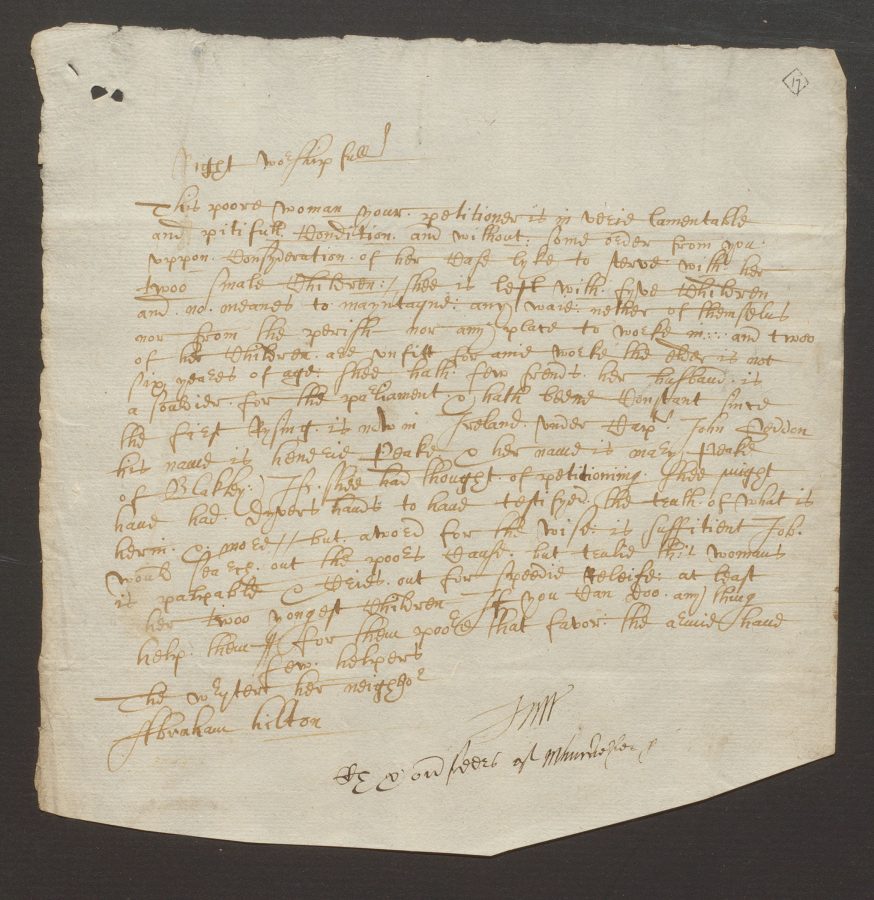 17
Right worshipfull
This poore woman your petitioner is in verie lamentable
and pitifull Condition and without some order from you
uppon Consyderation of her Case lyke to sterve with her
twoo smale Children / shee is left with fyve Children
and no meanes to mayntayne any waie nether of themselus
nor from the perish nor any place to worke in and twoo
of her Children are unfitt for anie worke the elder is not
six yeares of age shee hath few frends her husband is
a souldier for the parliament & hath beene Constant since
the first Rysing is now in Ireland under Capt John Seddon
his name is henerie Peake & her name is mary Peake
of Blakley : If shee had thought of petitioning shee might
haue had Dyvers hands to haue testifyed the truth of what is
herin & more // but aword for the wise is suffitient Job
would searce out the poors Cause but trulie this womans
is palpable & Cries out for speedie releife at least
her twoo yongest Children If you Can doo any thing
help them for them poore that favor the armie haue
few helpers
The wryter her neighbor
Abraham hilton
ouerseers of